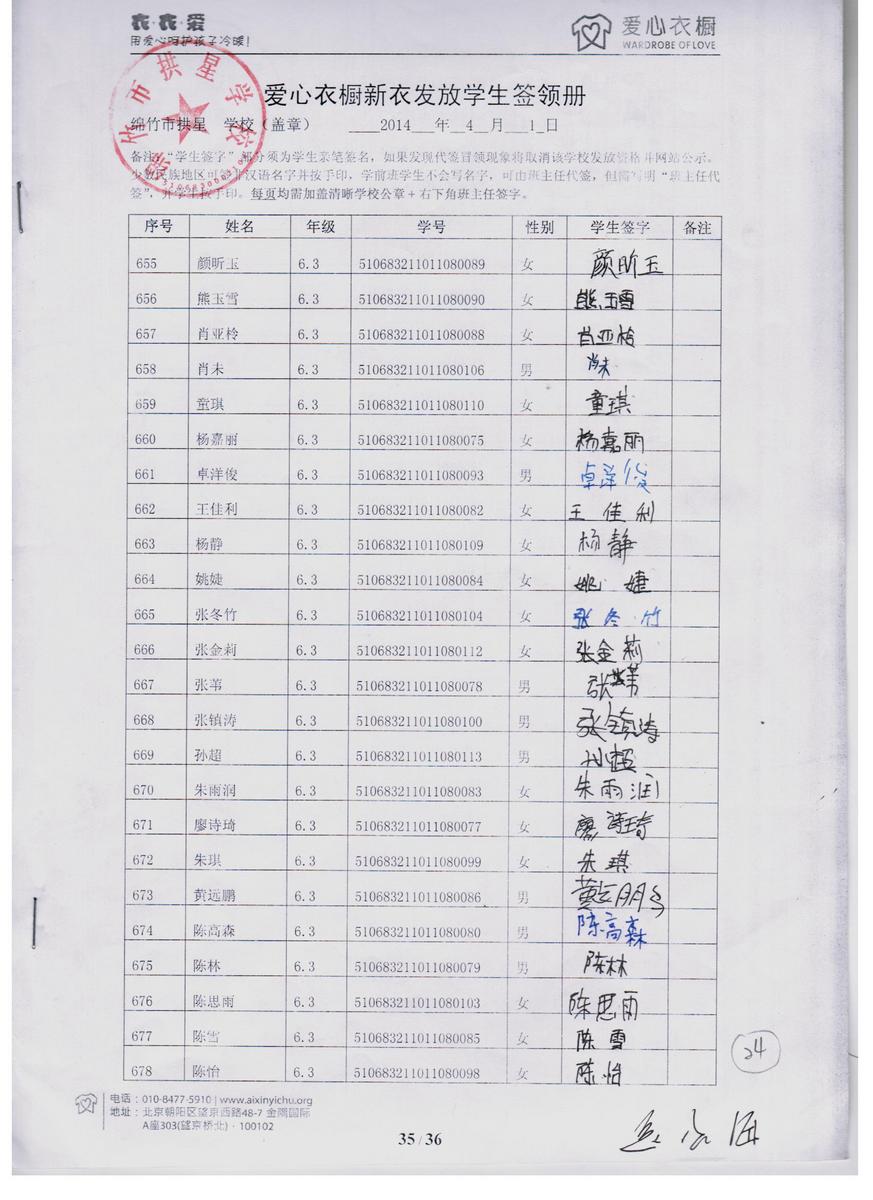 衣·衣·爱
用爱心呵护孩子冷暖!
爱心衣橱
WARDROBE OF LOVE
市拱星学校
爱心衣橱新衣发放学生签领册
绵竹市拱星 学校（盖章） 2014 年 4 月 1 日
备注：“学生签字”部分须为学生亲笔签名，如果发现代签冒领现象将取消该学校发放资格并网站公示。
少数民族地区可签非汉语名字并按手印，学前班学生不会写名字，可由班主任代签，但需写明“班主任代
签”，并学生按手印。每页均需加盖清晰学校公章+右下角班主任签字。
序号 姓名 年级 学号 性别 学生签字 备注
655 颜昕玉 6.3 510683211011080089 女 颜昕玉
656 熊玉雪 6.3 510683211011080090 女 熊玉雪
657 肖亚柃 6.3 510683211011080088 女 肖亚柃
658 肖未 6.3 510683211011080106 男 肖未
659 童琪 6.3 510683211011080110 女 童琪
660 杨嘉丽 6.3 510683211011080075 女 杨嘉丽
661 卓洋俊 6.3 510683211011080093 男 卓洋俊
662 王佳利 6.3 510683211011080082 女 王佳利
663 杨静 6.3 510683211011080109 女 杨静
664 姚婕 6.3 510683211011080084 女 姚婕
665 张冬竹 6.3 510683211011080104 女 张冬竹
666 张金莉 6.3 510683211011080112 女 张金莉
667 张苇 6.3 510683211011080078 男 张苇
668 张镇涛 6.3 510683211011080100 男 张镇涛
669 孙超 6.3 510683211011080113 男 孙超
670 朱雨润 6.3 510683211011080083 女 朱雨润
671 廖诗琦 6.3 510683211011080077 女 廖诗琦
672 朱琪 6.3 510683211011080099 女 朱琪
673 黄远鹏 6.3 510683211011080086 男 黄远鹏
674 陈高森 6.3 510683211011080080 男 陈高森
675 陈林 6.3 510683211011080079 男 陈林
676 陈思雨 6.3 510683211011080103 女 陈思雨
677 陈雪 6.3 510683211011080085 女 陈雪
678 陈怡 6.3 510683211011080098 女 陈怡
24
电话：010-8477-5910 | www.aixinyichu.org
地址：北京朝阳区望京西路48-7 金隅国际
A座303(望京桥北)·100102
35/36